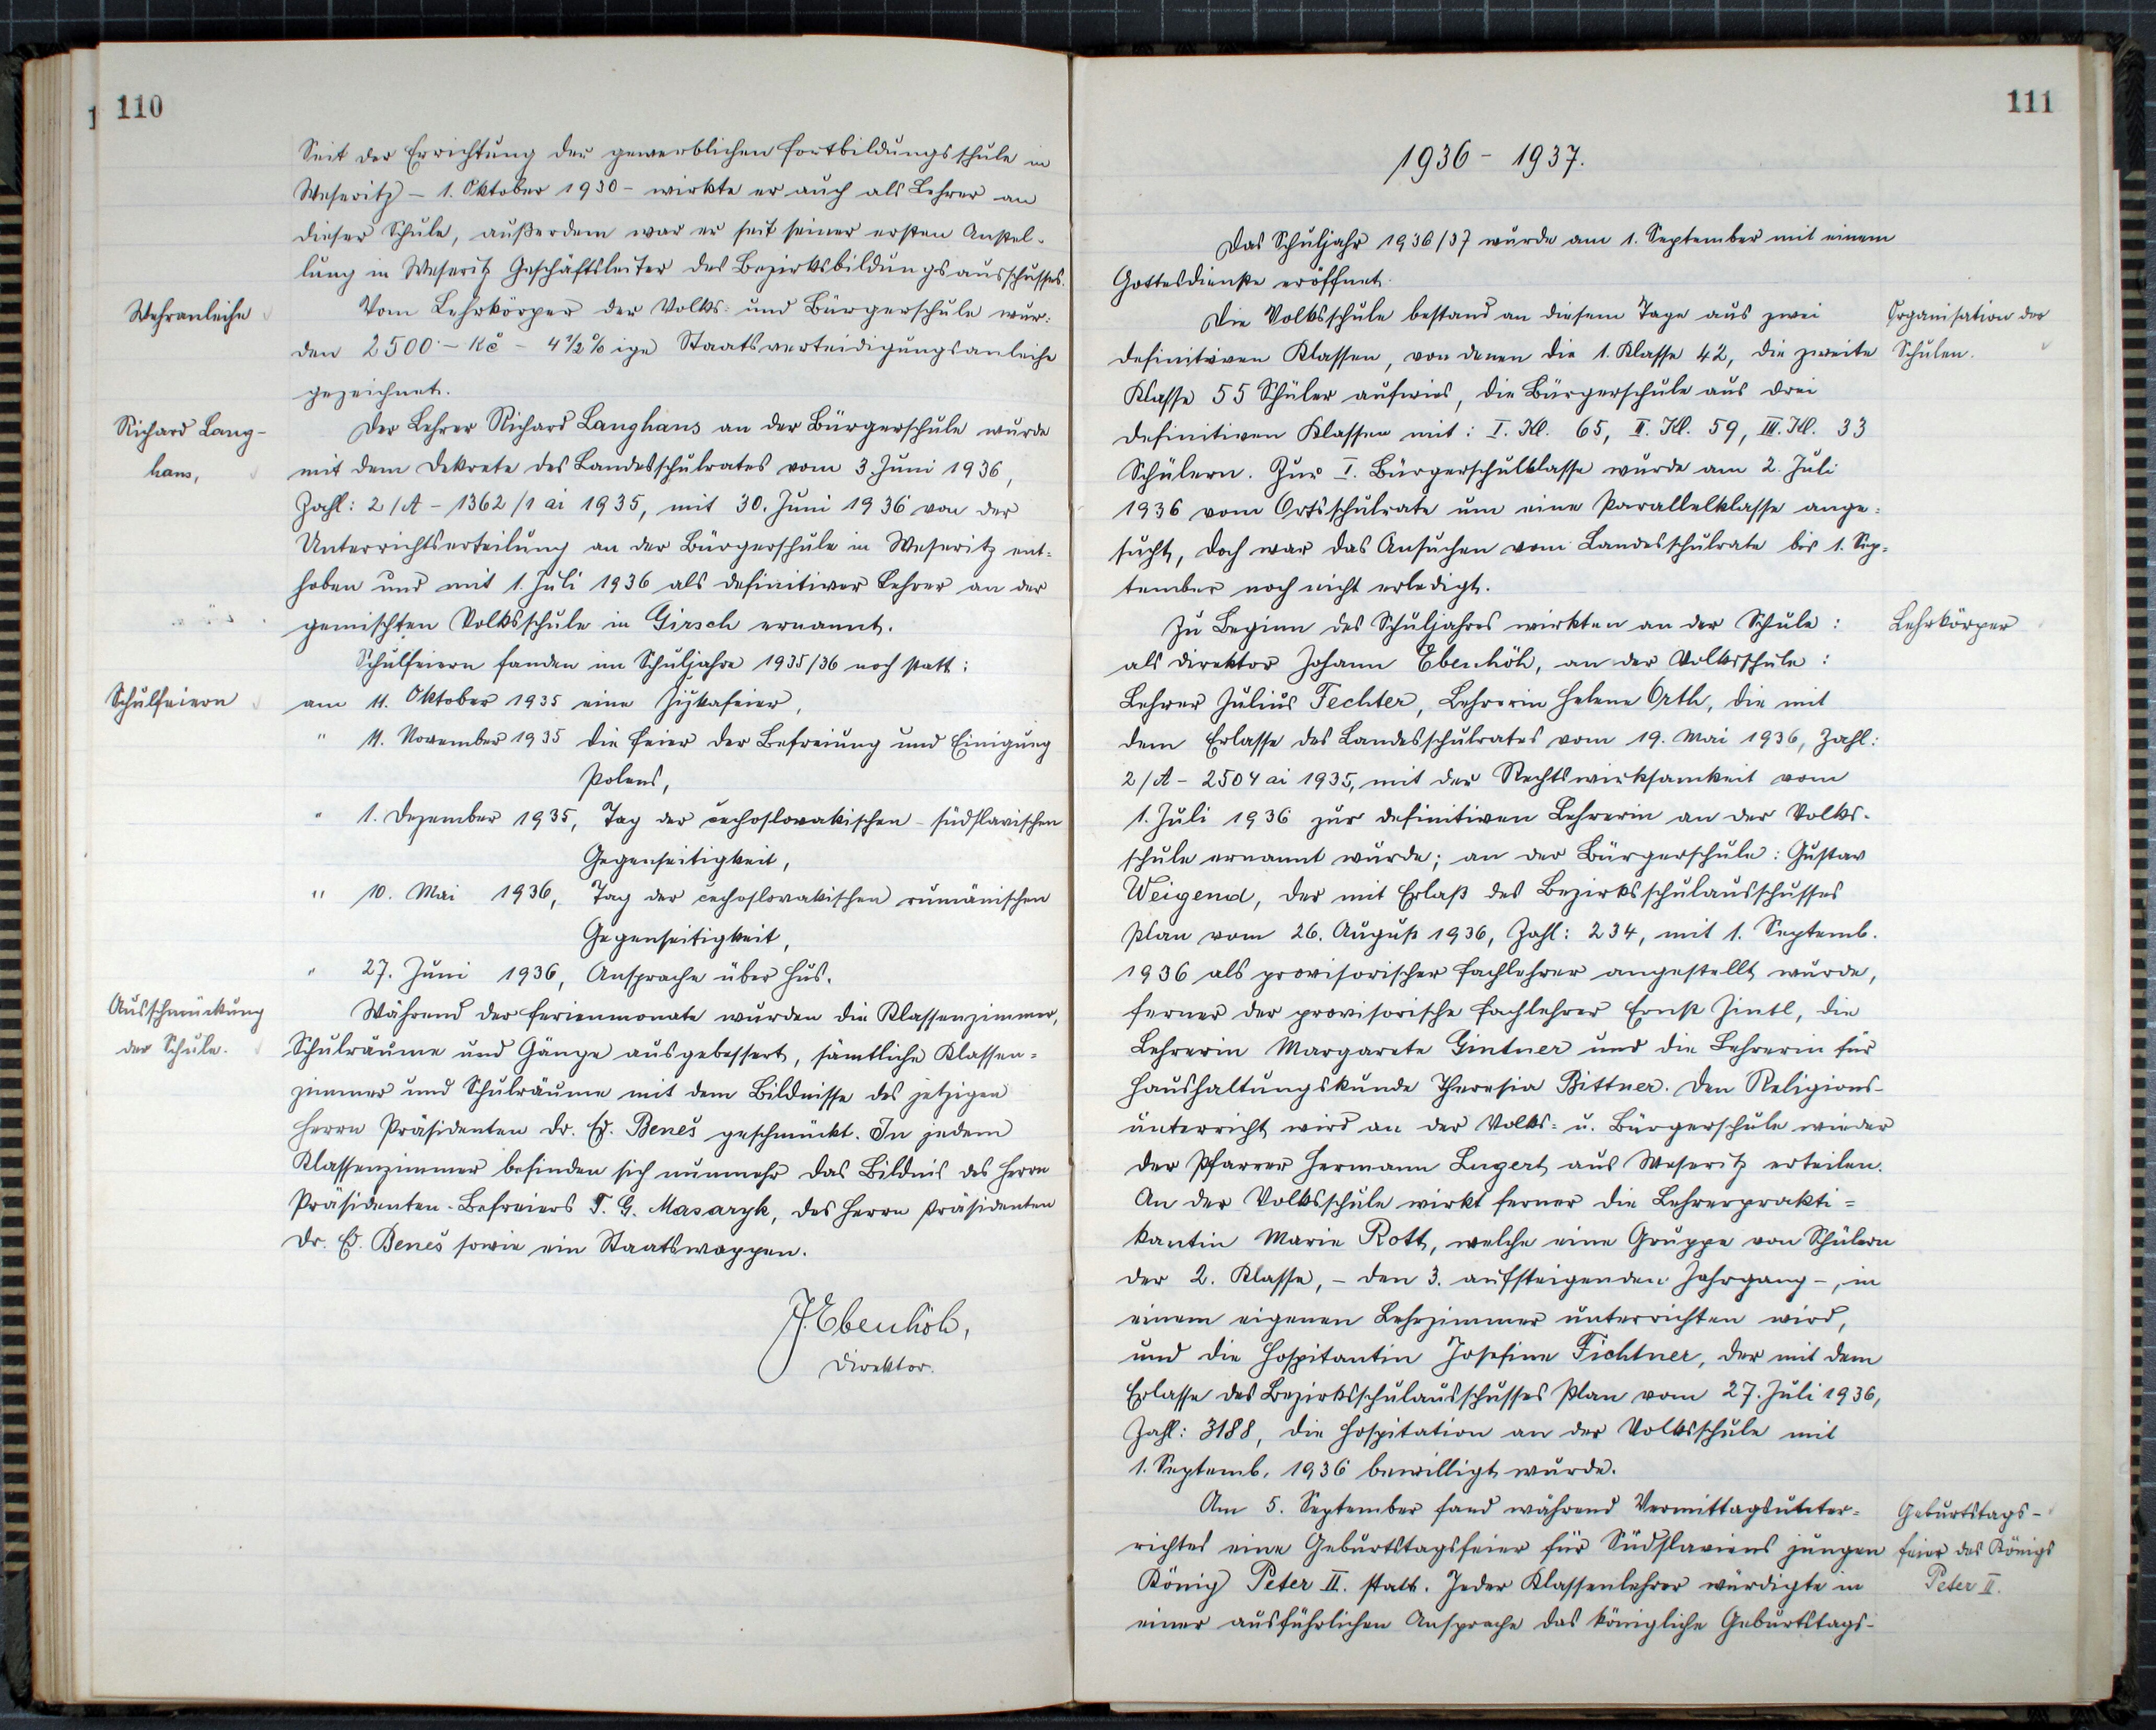 110
Seit der Errichtung der gewerblichen Fortbildungsschule in
Weseritz – 1. Oktober 1930 – wirkte er auch als Lehrer an
dieser Schule, außerdem war er seit seiner ersten Anstel-
lung in Weseritz Geschäftsleiter des Bezirksbildungsausschusses.
Wehranleihe
Vom Lehrkörper der Volks- und Bürgerschule wur-
den 2500·– Kč – 4 1/2 % ige Staatsverteidigungsanleihe
gezeichnet.
Richard Lang-
hans,
Der Lehrer Richard Langhans an der Bürgerschule wurde
mit dem Dekrete des Landesschulrates vom 3. Juni 1936,
Zahl: 2/A – 1362/1 ai 1935, mit 30. Juni 1936 von der
Unterrichtserteilung an der Bürgerschule in Weseritz ent-
hoben und mit 1. Juli 1936 als definitiver Lehrer an der
gemischten Volksschule in Girsch ernannt.
Schulfeiern fanden im Schuljahre 1935/36 noch statt:
Schulfeiern
am 11. Oktober 1935 eine Žižkafeier,
" 11. November 1935 die Feier der Befreiung und Einigung
Polens,
" 1. Dezember 1935, Tag der čechoslovakischen – südslavischen
Gegenseitigkeit,
" 10. Mai 1936, Tag der čechoslovakischen rumänischen
Gegenseitigkeit,
" 27. Juni 1936, Ansprache über Hus.
Ausschmückung
der Schule.
Während der Ferienmonate wurden die Klassenzimmer,
Schulräume und Gänge ausgebessert, sämtliche Klassen-
zimmer und Schulräume mit dem Bildnisse des jetzigen
Herrn Präsidenten Dr. Ed. Beneš geschmückt. In jedem
Klassenzimmer befinden sich nunmehr das Bildnis des Herrn
Präsidenten-Befreiers T. G. Masaryk, des Herrn Präsidenten
Dr. Ed. Beneš sowie ein Staatswappen.
J. Ebenhöh,
Direktor.
111
1936 – 1937.
Das Schuljahr 1936/37 wurde am 1. September mit einem
Gottesdienste eröffnet.
Organisation der
Schulen.
Die Volksschule bestand an diesem Tage aus zwei
definitiven Klassen, von denen die 1. Klasse 42, die zweite
Klasse 55 Schüler aufwies, die Bürgerschule aus drei
definitiven Klassen mit: I. Kl. 65, II. Kl. 59, III. Kl. 33
Schülern. Zur I. Bürgerschulklasse wurde am 2. Juli
1936 vom Ortsschulrate um eine Parallelklasse ange-
sucht, doch war das Ansuchen vom Landesschulrate bis 1. Sep-
tember noch nicht erledigt.
Lehrkörper
Zu Beginn des Schuljahres wirkten an der Schule:
als Direktor Johann Ebenhöh, an der Volksschule:
Lehrer Julius Fechter, Lehrerin Helene Orth, die mit
dem Erlasse des Landesschulrates vom 19. Mai 1936, Zahl:
2/A – 2504 ai 1935, mit der Rechtswirksamkeit vom
1. Juli 1936 zur definitiven Lehrerin an der Volks-
schule ernannt wurde; an der Bürgerschule: Gustav
Weigend, der mit Erlaß des Bezirksschulausschusses
Plan vom 26. August 1936, Zahl: 234, mit 1. Septemb.
1936 als provisorischer Fachlehrer angestellt wurde,
ferner der provisorische Fachlehrer Ernst Zintl, die
Lehrerin Margarete Gintner und die Lehrerin für
Haushaltungskunde Theresia Bittner. Den Religions-
unterricht wird an der Volks- u. Bürgerschule wieder
der Pfarrer Hermann Lugert aus Weseritz erteilen.
An der Volksschule wirkt ferner die Lehrerprakti-
kantin Marie Rott, welche eine Gruppe von Schülern
der 2. Klasse, – den 3. aufsteigenden Jahrgang –, in
einem eigenen Lehrzimmer unterrichten wird,
und die Hospitantin Josefine Fichtner, der mit dem
Erlasse des Bezirksschulausschusses Plan vom 27. Juli 1936,
Zahl: 3188, die Hospitation an der Volksschule mit
1. Septemb. 1936 bewilligt wurde.
Geburtstags-
feier des Königs
Peter II.
Am 5. September fand während Vormittagsunter-
richtes eine Geburtstagsfeier für Südslaviens jungen
König Peter II. statt. Jeder Klassenlehrer würdigte in
einer ausführlichen Ansprache das königliche Geburtstags-